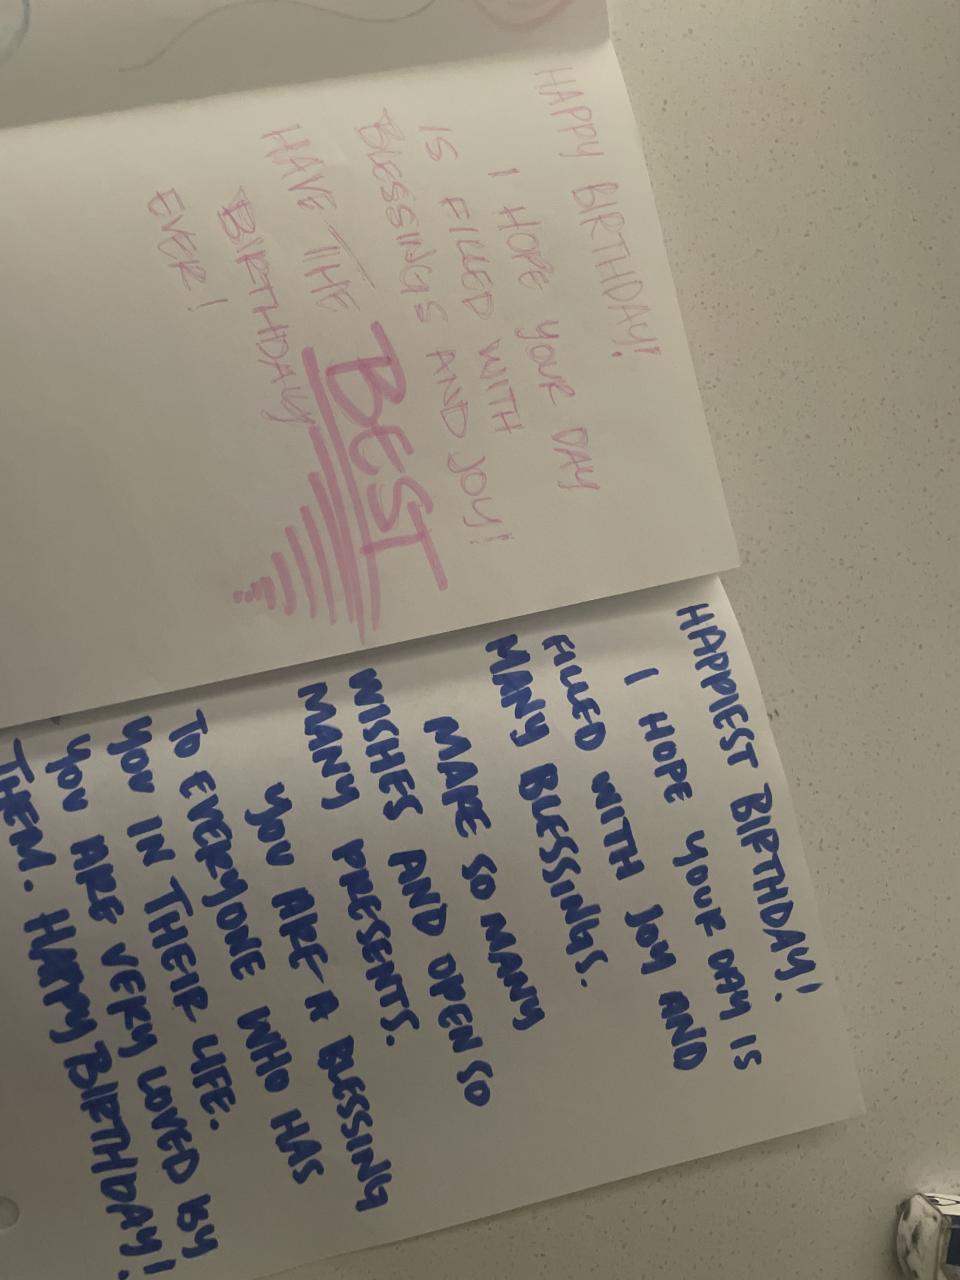 HAPPY BIRTHDAY!
I HOPE YOUR DAY
IS FILLED WITH
BLESSINGS AND JOY!
HAVE THE BEST
BIRTHDAY
EVER!
HAPPIEST BIRTHDAY!
I HOPE YOUR DAY IS
FILLED WITH JOY AND
MANY BLESSINGS.
MAKE SO MANY
WISHES AND OPEN SO
MANY PRESENTS.
YOU ARE A BLESSING
TO EVERYONE WHO HAS
YOU IN THEIR LIFE.
YOU ARE VERY LOVED BY
THEM. HAPPY BIRTHDAY!